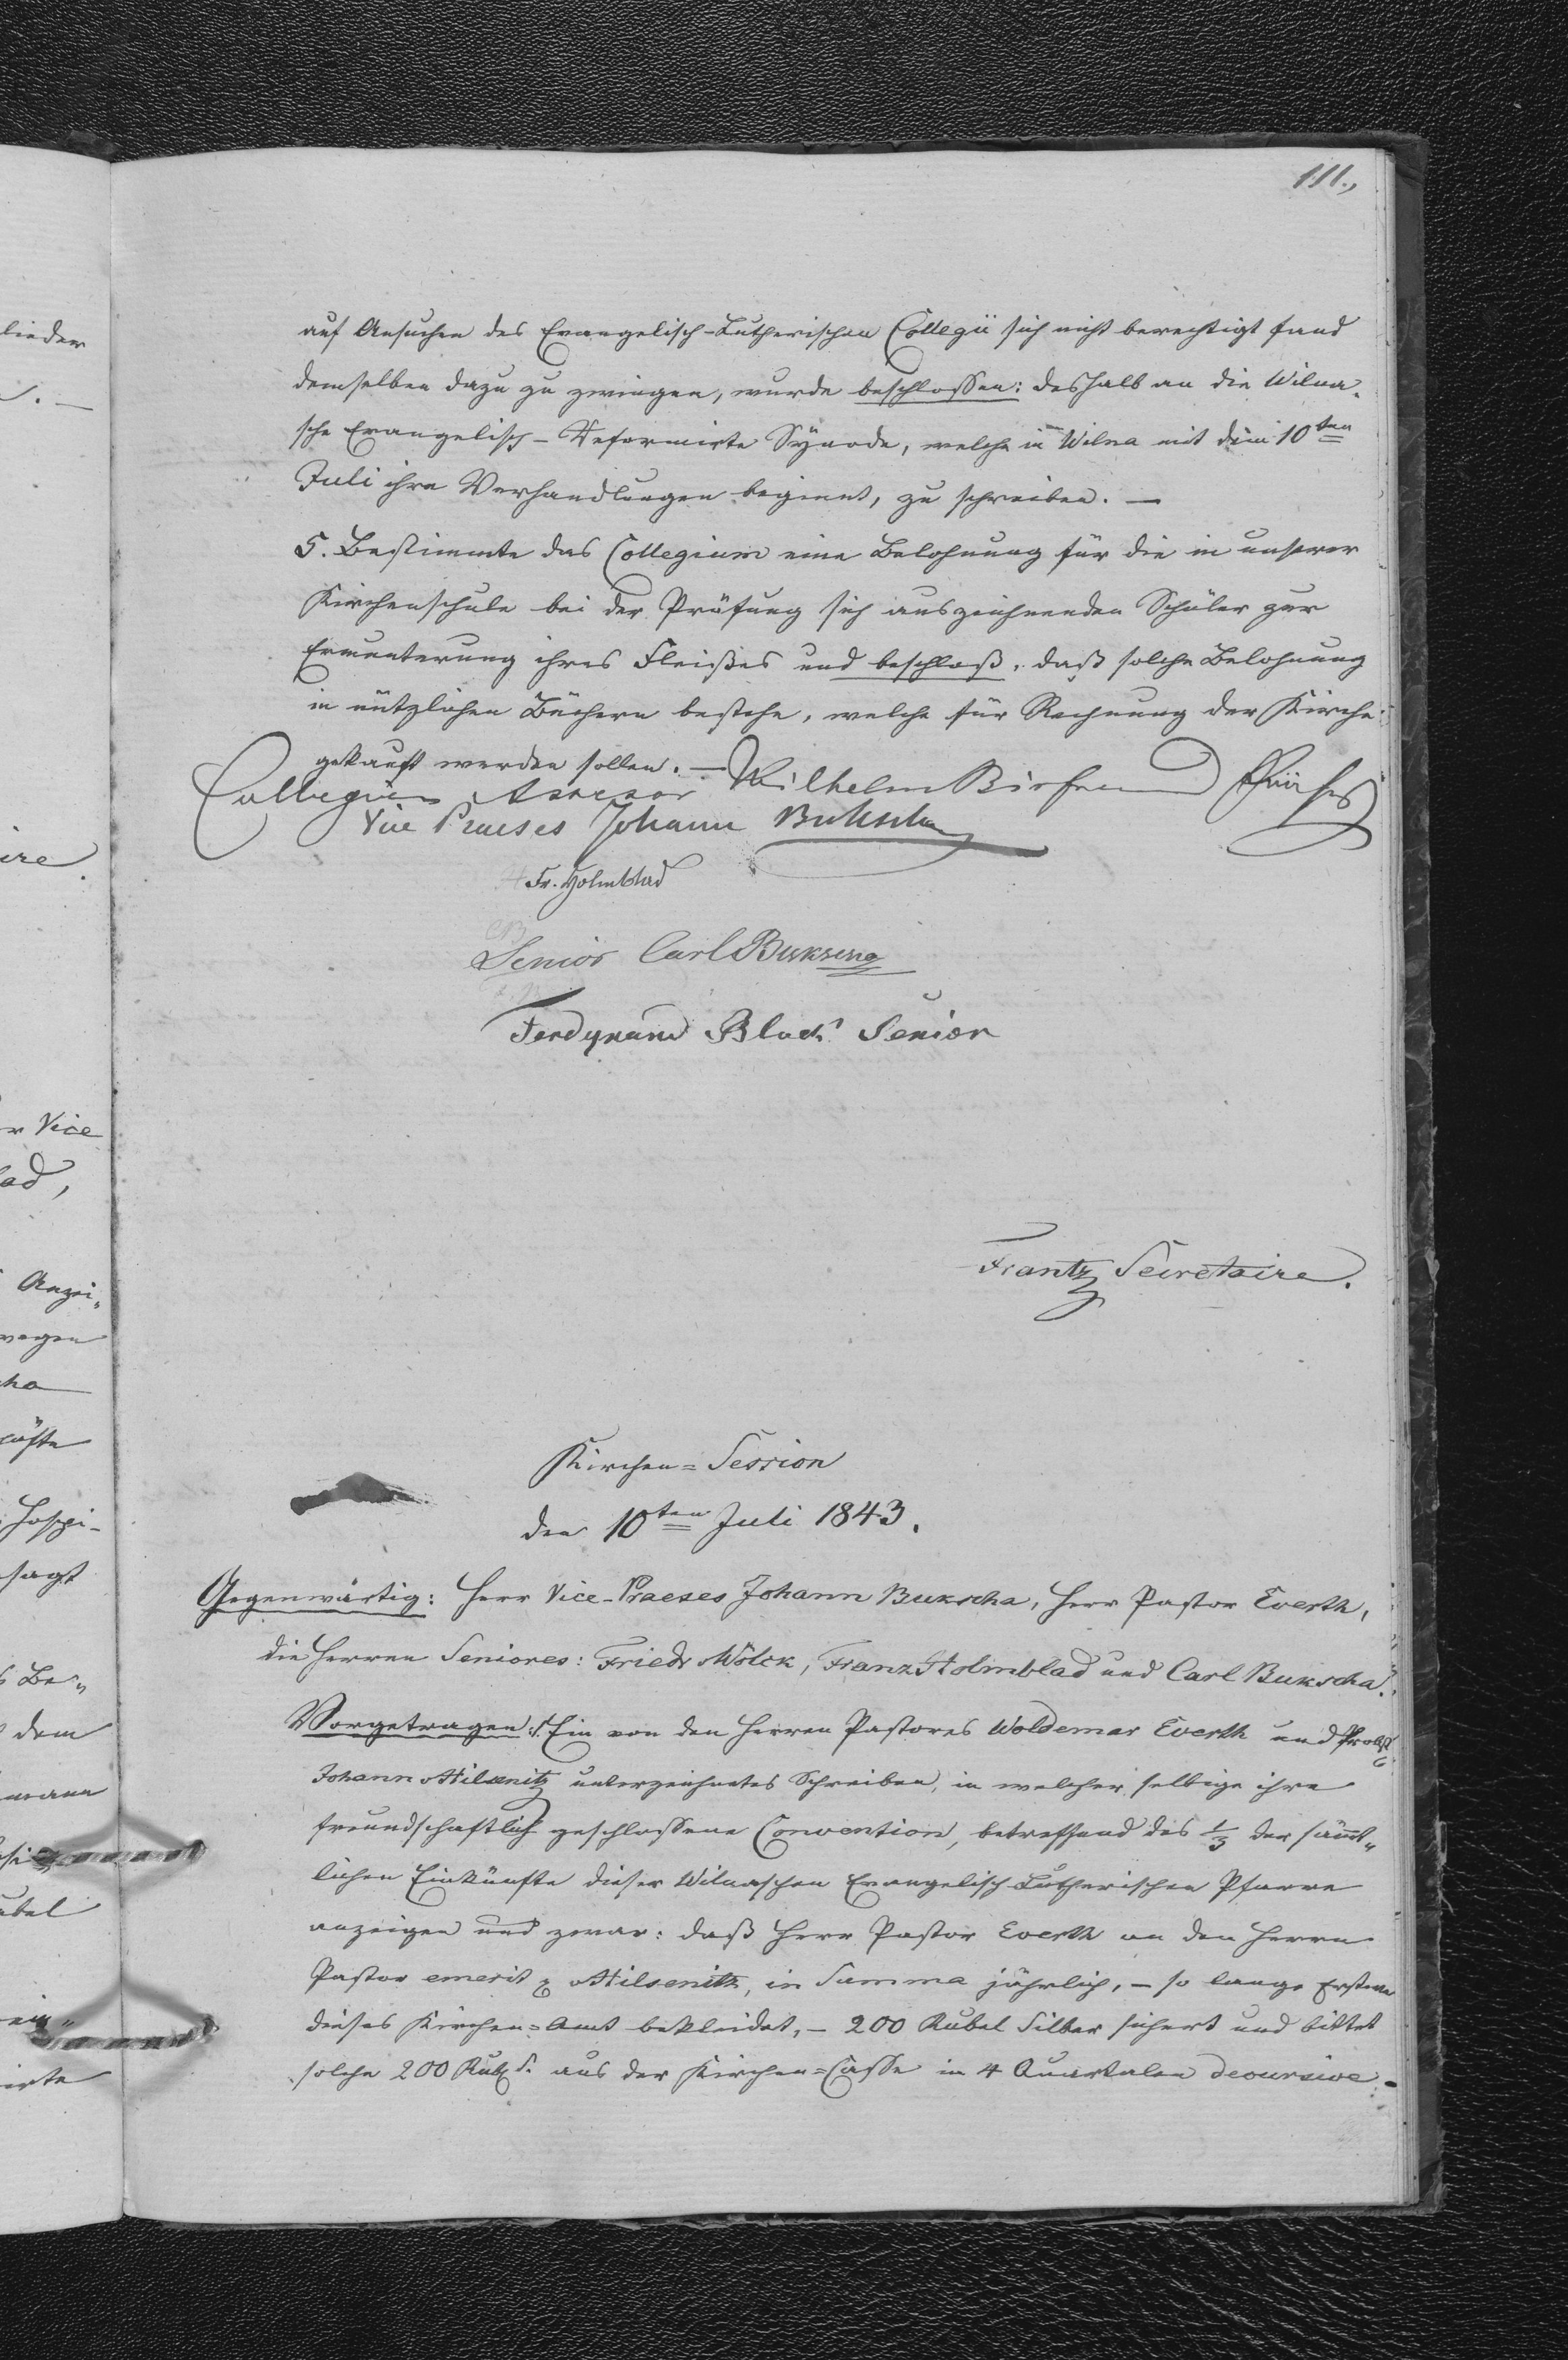 111.,
auf Ansuchen des Evangelisch-Lutherischen Collegii sich nicht berechtigt fand
demselben dazu zu zwingen, wurde beschlossen: deshalb an die Wilna-
sche Evangelisch-Reformirte Synode, welche in Wilna mit dem 10ten
Juli ihre Verhandlungen beginnt, zu schreiben. —
5. Bestimmte das Collegium eine Belohnung für die in unserer
Kirchenschule bei der Prüfung sich auszeichnenden Schüler zur
Ermunterung ihres Fleißes und beschloß, daß solche Belohnung
in nützlichen Büchern bestehe, welche für Rechnung der Kirche
gekauft werden sollen. —
Collegien Assessor Wilhelm Präses
Vice Praeses Johann Bukscha
Fr. Holmblad
Senior Carl Bukscha
Ferdynand Senior
Frantz Secretaire.
Kirchen-Session
den 10ten Juli 1843.
Gegenwärtig: Herr Vice-Praeses Johann Bukscha, Herr Pastor Everth,
die Herren Seniores: Friedr Mölck, Franz Holmblad und Carl Bukscha.
Vorgetragen: 1. Ein von den Herren Pastores Woldemar Everth und Probst
Johann Nilsenitz unterzeichnetes Schreiben, in welcher selbige ihre
freundschaftlich geschlossene Convention, betreffend des 1/3 der sämmt-
lichen Einkünfte dieser Wilnaschen Evangelisch-Lutherischen Pfarre
anzeigen und zwar: daß Herr Pastor Everth an den Herrn
Pastor emerit Nilsenitz, in Summa jährlich, — so lange Ersterer
dieses Kirchen-Amt bekleidet, — 200 Rubel Silber sichert und bittet
solche 200 Rub S. aus der Kirchen-Casse in 4 Quartalen decursive
lieder
ire.
r Vice
ad,
Anzei-
wegen
cha
Hospi-
sagt
s Be-
dem
mann
ubel
ein-
irte